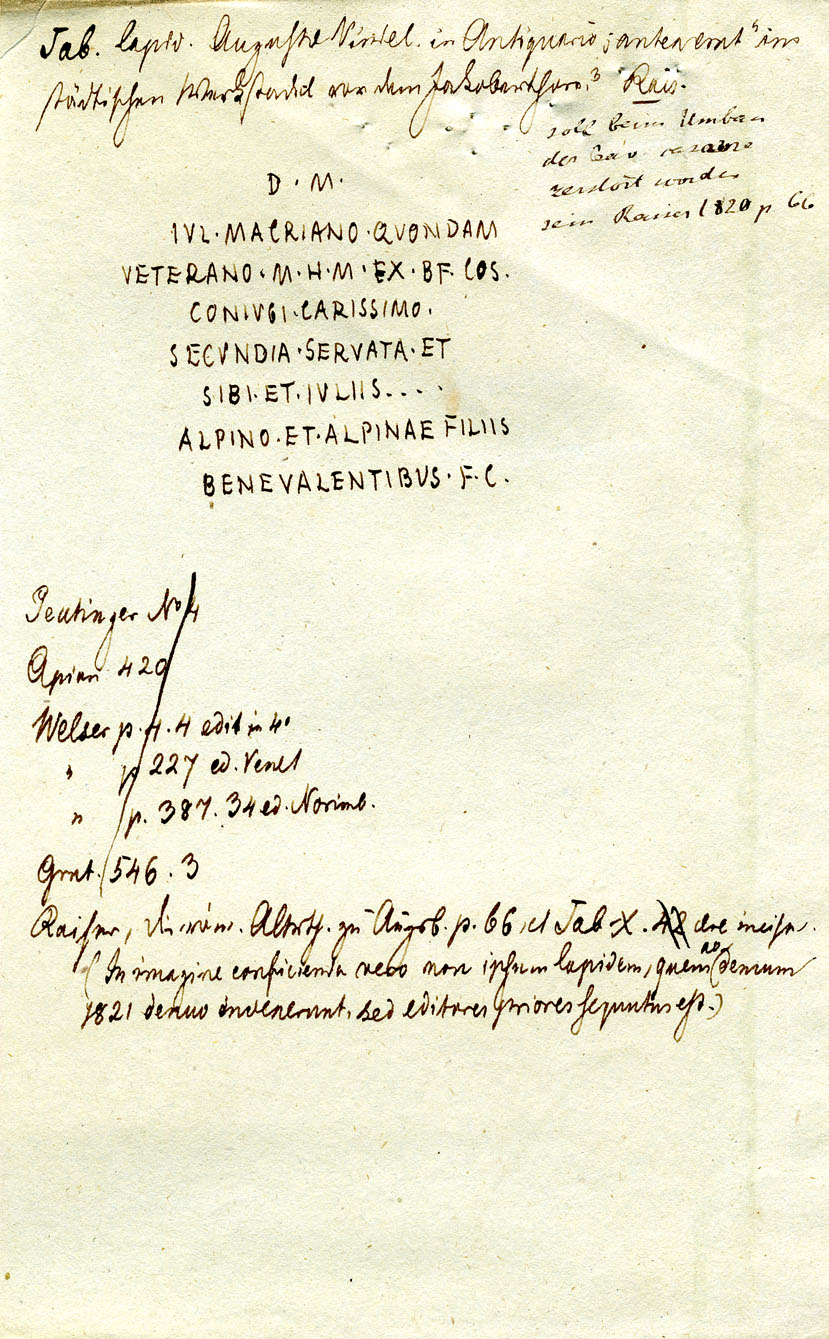 Tab. lapid. Augustae Vindel. in Antiquario; antea erat "im
städtischen Werkstadel vor dem Jakoberthore." Rais.
soll beim Umbau
der
zerstört worden
sein Raiser 1820 p. 66
D. M.
IVL. MACRIANO. QVONDAM
VETERANO. M. H. M. EX. BF. COS.
CONIVGI. CARISSIMO.
SECVNDIA. SERVATA. ET
SIBI. ET. IVLIIS....
ALPINO. ET. ALPINAE FILIIS
BENEVALENTIBVS. F. C.
Peutinger No 4
Apian 420
Welser p. 4. edit in 4°
" p 227 ed. Venet
" p. 387. 34 ed. Norimb.
Grut. 546. 3
Raiser, die röm. Alterth. zu Augsb. p. 66, et Tab. X. aere incisa.
(In imagine conficienda vero non ipsum lapidem, quem demum
1821 denuo invenerunt, sed editores priores sequutus est.)